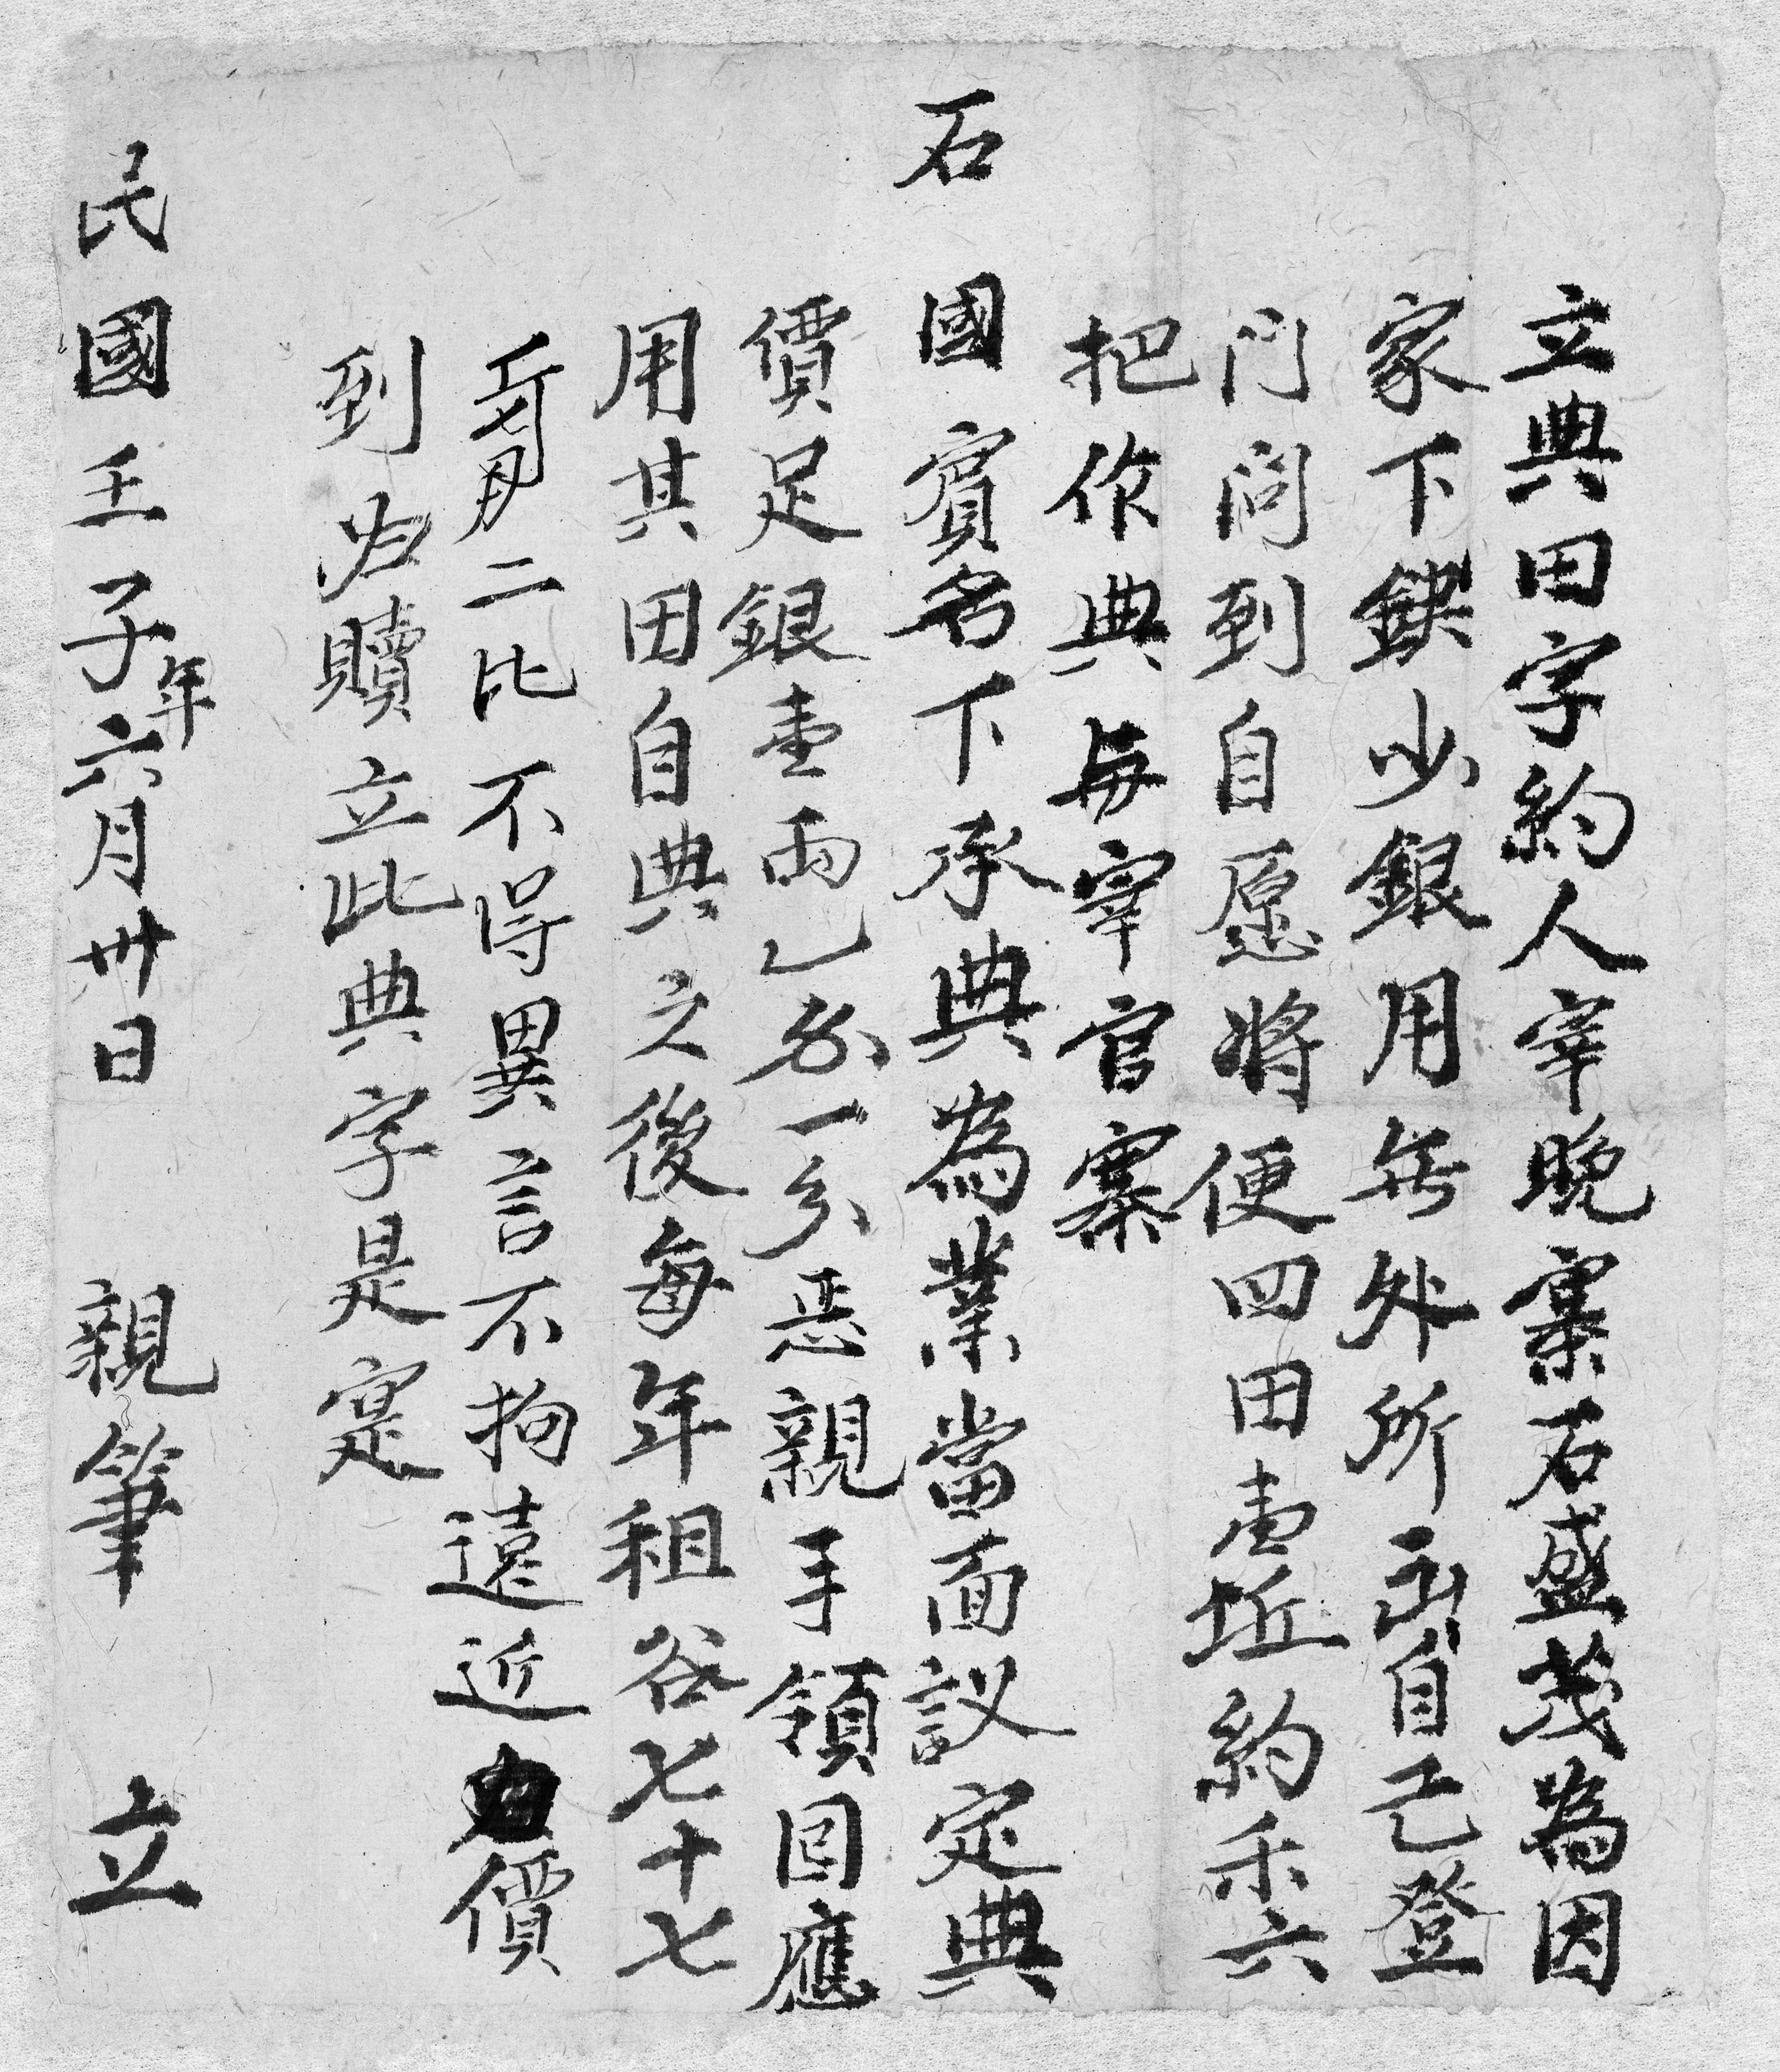 立典田字約人宰晚寨石盛茂為因
家下鈌少銀用無外所出自己登
門问到自愿將便四田壹坵約禾六
把作典與宰官寨
石國賓名下承典為業當面議定典
價足銀壹両乙分一分恙親手領回應
用其田自典之後每年租谷七十七
二比不得異言不拘遠近價
到归贖立此典字是寔
民國壬子年六月卅日 親筆 立